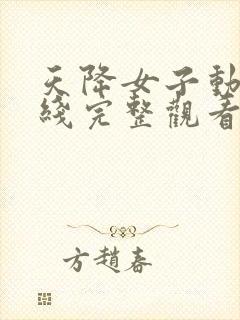 天降女子動
綫完整觀看
方趙春